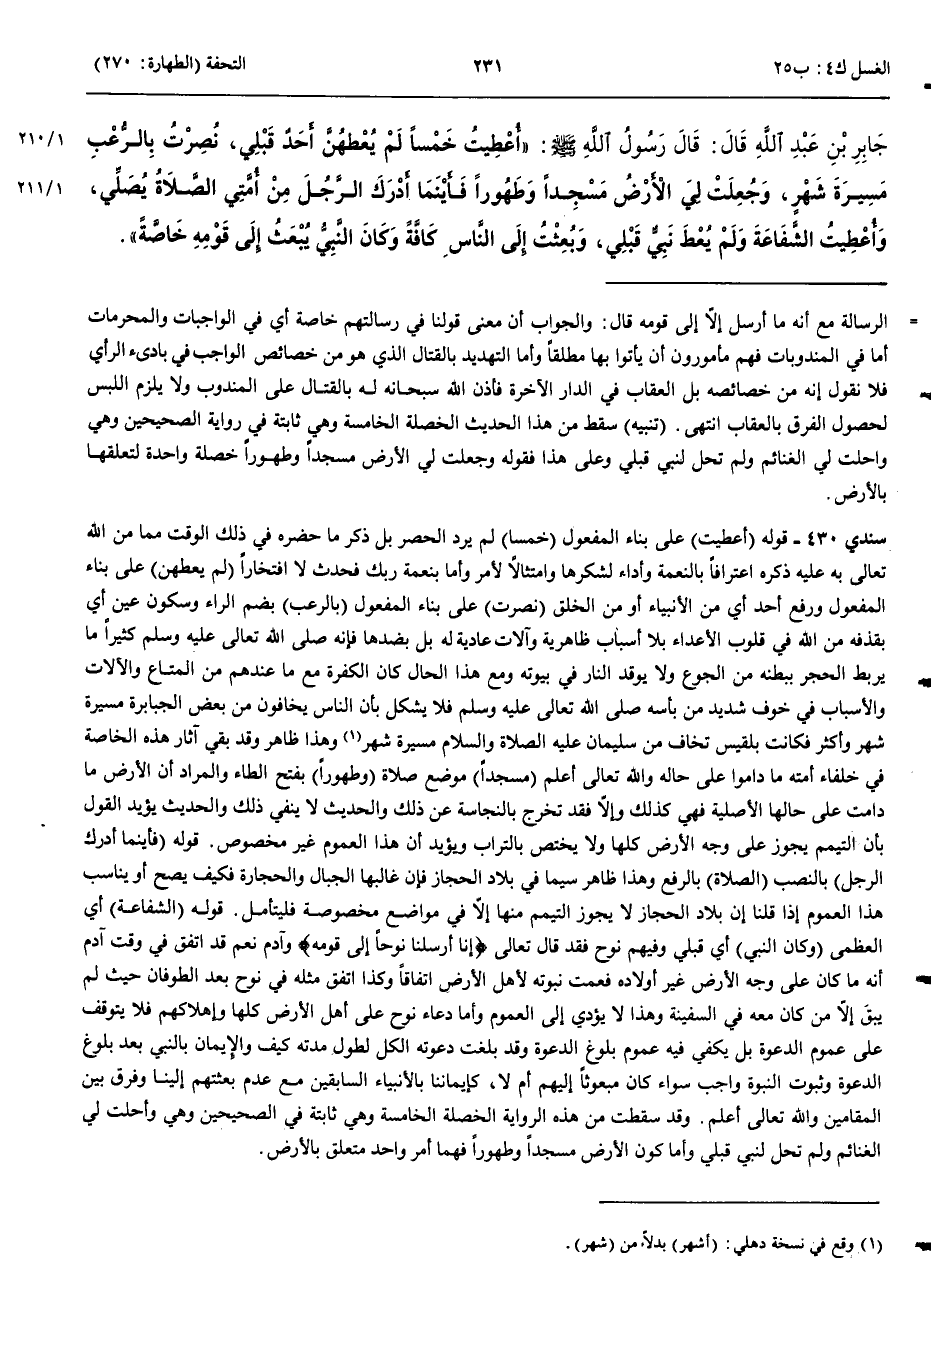 الغسل ك٤: ب٢٥
٢٣١
التحفة (الطهارة: ٢٧٠)
جَابِرِ بْنِ عَبْدِ ٱللَّهِ قَالَ: قَالَ رَسُولُ ٱللَّهِ ﷺ: «أُعْطِيتُ خَمْساً لَمْ يُعْطَهُنَّ أَحَدٌ قَبْلِي، نُصِرْتُ بِالرُّعْبِ ٢١٠/١
مَسِيرَةَ شَهْرٍ، وَجُعِلَتْ لِيَ الْأَرْضُ مَسْجِداً وَطَهُوراً فَأَيْنَمَا أَدْرَكَ الرَّجُلَ مِنْ أُمَّتِي الصَّلَاةُ يُصَلِّي، ٢١١/١
وَأُعْطِيتُ الشَّفَاعَةَ وَلَمْ يُعْطَ نَبِيٌّ قَبْلِي، وَبُعِثْتُ إِلَى النَّاسِ كَافَّةً وَكَانَ النَّبِيُّ يُبْعَثُ إِلَى قَوْمِهِ خَاصَّةً».
= الرسالة مع أنه ما أرسل إلّا إلى قومه قال: والجواب أن معنى قولنا في رسالتهم خاصة أي في الواجبات والمحرمات
أما في المندوبات فهم مأمورون أن يأتوا بها مطلقاً وأما التهديد بالقتال الذي هو من خصائص الواجب في بادىء الرأي
فلا نقول إنه من خصائصه بل العقاب في الدار الآخرة فأذن الله سبحانه له بالقتال على المندوب ولا يلزم اللبس
لحصول الفرق بالعقاب انتهى. (تنبيه) سقط من هذا الحديث الخصلة الخامسة وهي ثابتة في رواية الصحيحين وهي
واحلت لي الغنائم ولم تحل لنبي قبلي وعلى هذا فقوله وجعلت لي الأرض مسجداً وطهوراً خصلة واحدة لتعلقها
بالأرض.
سندي ٤٣٠ ـ قوله (أعطيت) على بناء المفعول (خمسا) لم يرد الحصر بل ذكر ما حضره في ذلك الوقت مما من الله
تعالى به عليه ذكره اعترافاً بالنعمة وأداء لشكرها وامتثالاً لأمر وأما بنعمة ربك فحدث لا افتخاراً (لم يعطهن) على بناء
المفعول ورفع أحد أي من الأنبياء أو من الخلق (نصرت) على بناء المفعول (بالرعب) بضم الراء وسكون عين أي
بقذفه من الله في قلوب الأعداء بلا أسباب ظاهرية وآلات عادية له بل بضدها فإنه صلى الله تعالى عليه وسلم كثيراً ما
يربط الحجر ببطنه من الجوع ولا يوقد النار في بيوته ومع هذا الحال كان الكفرة مع ما عندهم من المتاع والآلات
والأسباب في خوف شديد من بأسه صلى الله تعالى عليه وسلم فلا يشكل بأن الناس يخافون من بعض الجبابرة مسيرة
شهر وأكثر فكانت بلقيس تخاف من سليمان عليه الصلاة والسلام مسيرة شهر(١) وهذا ظاهر وقد بقي آثار هذه الخاصة
في خلفاء أمته ما داموا على حاله والله تعالى أعلم (مسجداً) موضع صلاة (وطهوراً) بفتح الطاء والمراد أن الأرض ما
دامت على حالها الأصلية فهي كذلك وإلّا فقد تخرج بالنجاسة عن ذلك والحديث لا ينفي ذلك والحديث يؤيد القول
بأن التيمم يجوز على وجه الأرض كلها ولا يختص بالتراب ويؤيد أن هذا العموم غير مخصوص. قوله (فأينما أدرك
الرجل) بالنصب (الصلاة) بالرفع وهذا ظاهر سيما في بلاد الحجاز فإن غالبها الجبال والحجارة فكيف يصح أو يناسب
هذا العموم إذا قلنا إن بلاد الحجاز لا يجوز التيمم منها إلّا في مواضع مخصوصة فليتأمل. قوله (الشفاعة) أي
العظمى (وكان النبي) أي قبلي وفيهم نوح فقد قال تعالى ﴿إنا أرسلنا نوحاً إلى قومه﴾ وآدم نعم قد اتفق في وقت آدم
أنه ما كان على وجه الأرض غير أولاده فعمت نبوته لأهل الأرض اتفاقاً وكذا اتفق مثله في نوح بعد الطوفان حيث لم
يبقَ إلّا من كان معه في السفينة وهذا لا يؤدي إلى العموم وأما دعاء نوح على أهل الأرض كلها وإهلاكهم فلا يتوقف
على عموم الدعوة بل يكفي فيه عموم بلوغ الدعوة وقد بلغت دعوته الكل لطول مدته كيف والإيمان بالنبي بعد بلوغ
الدعوة وثبوت النبوة واجب سواء كان مبعوثاً إليهم أم لا، كإيماننا بالأنبياء السابقين مع عدم بعثتهم إلينا وفرق بين
المقامين والله تعالى أعلم. وقد سقطت من هذه الرواية الخصلة الخامسة وهي ثابتة في الصحيحين وهي وأحلت لي
الغنائم ولم تحل لنبي قبلي وأما كون الأرض مسجداً وطهوراً فهما أمر واحد متعلق بالأرض.
(١) وقع في نسخة دهلي: (أشهر) بدلاً من (شهر).